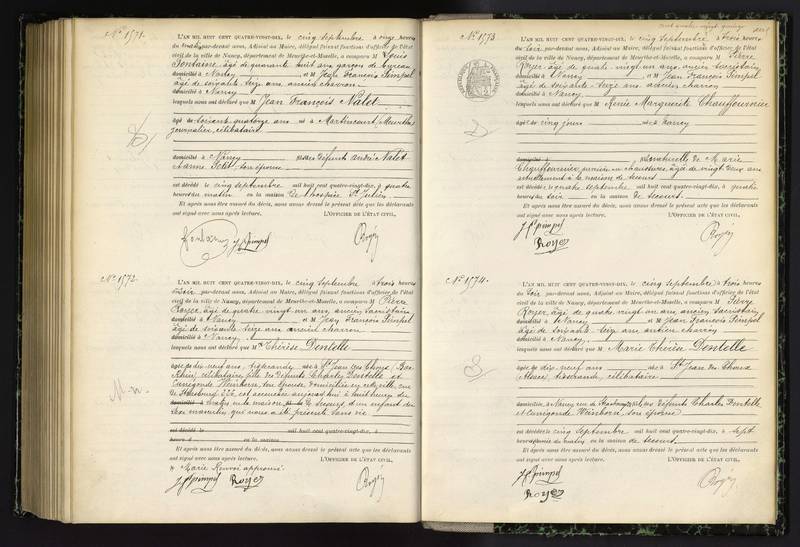 No 1571.
L'AN MIL HUIT CENT QUATRE-VINGT-DIX, le cinq septembre à onze heures
du matin par-devant nous, Adjoint au Maire, délégué faisant fonctions d'officier de l'état
civil de la ville de Nancy, département de Meurthe-et-Moselle, a comparu M Louis
Fontaine, âgé de quarante huit ans garçon de bureau
domicilié à Nancy et M Jean François Pimpel
âgé de soixante seize ans ancien charron
domicilié à Nancy
lesquels nous ont déclaré que M Jean François Nalet
âgé de soixante quatorze ans né à Martincourt (Meurthe
journalier, célibataire
domicilié à Nancy fils des défunts André Nalet
et Anne Petit, son épouse
est décédé le cinq septembre mil huit cent quatre-vingt-dix, à quatre
heures du matin en la maison de l'hospice St Julien
Et après nous être assuré du décès, nous avons dressé le présent acte que les déclarants
ont signé avec nous après lecture. L'OFFICIER DE L'ÉTAT CIVIL,
Fontaine J. F. Pimpel
No 1572.
L'AN MIL HUIT CENT QUATRE-VINGT-DIX, le cinq septembre à trois heures
du soir par-devant nous, Adjoint au Maire, délégué faisant fonctions d'officier de l'état
civil de la ville de Nancy, département de Meurthe-et-Moselle, a comparu M Pierre
Royer, âgé de quatre vingt un ans, ancien sacristain
domicilié à Nancy et M Jean François Pimpel
âgé de soixante seize ans ancien charron
domicilié à Nancy
lesquels nous ont déclaré que M Thérèse Dentelle
âgée de dix neuf ans tisserande née à St Jean des Choux (Bas
Rhin) célibataire, fille des défunts Charles Dentelle et
son épouse domiciliée en cette ville, rue
de Strasbourg est accouchée aujourd'hui à huit heures du
matin en la maison de secours, d'un enfant du
sexe masculin qui nous a été présenté sans vie
est décédé le mil huit cent quatre-vingt-dix, à
heures d en la maison
Et après nous être assuré du décès, nous avons dressé le présent acte que les déclarants
ont signé avec nous après lecture. L'OFFICIER DE L'ÉTAT CIVIL,
Marie Renvoi approuvé.
J. F. Pimpel Royer
No 1573
L'AN MIL HUIT CENT QUATRE-VINGT-DIX, le cinq septembre à trois heures
du soir par-devant nous, Adjoint au Maire, délégué faisant fonctions d'officier de l'état
civil de la ville de Nancy, département de Meurthe-et-Moselle, a comparu M Pierre
Royer âgé de quatre-vingt un ans ancien sacristain
domicilié à Nancy et M Jean François Pimpel
âgé de soixante-seize ans ancien charron
domicilié à Nancy
lesquels nous ont déclaré que M Renée Marguerite Chauffournier
âgée de cinq jours née à Nancy
domicilié à naturelle de Marie
Chauffournier, ouvrière en chaussures, âgée de vingt deux ans
actuellement à la maison de secours
est décédée le quatre septembre mil huit cent quatre-vingt-dix, à quatre
heures du soir en la maison de secours.
Et après nous être assuré du décès, nous avons dressé le présent acte que les déclarants
ont signé avec nous après lecture. L'OFFICIER DE L'ÉTAT CIVIL,
J. F. Pimpel
Royer
No 1574.
L'AN MIL HUIT CENT QUATRE-VINGT-DIX, le cinq septembre à trois heures
du soir par-devant nous, Adjoint au Maire, délégué faisant fonctions d'officier de l'état
civil de la ville de Nancy, département de Meurthe-et-Moselle, a comparu M Pierre
Royer, âgé de quatre vingt un ans, ancien sacristain
domicilié à Nancy et M Jean François Pimpel
âgé de soixante seize ans ancien charron
domicilié à Nancy
lesquels nous ont déclaré que M Marie Thérèse Dentelle
âgée de dix neuf ans née à St Jean des Choux
(Alsace) tisserande célibataire
domiciliée à Nancy rue de Strasbourg fille des défunts Charles Dentelle
et son épouse
est décédée le cinq septembre mil huit cent quatre-vingt-dix, à sept
heures du matin en la maison de secours.
Et après nous être assuré du décès, nous avons dressé le présent acte que les déclarants
ont signé avec nous après lecture. L'OFFICIER DE L'ÉTAT CIVIL,
J. F. Pimpel
Royer